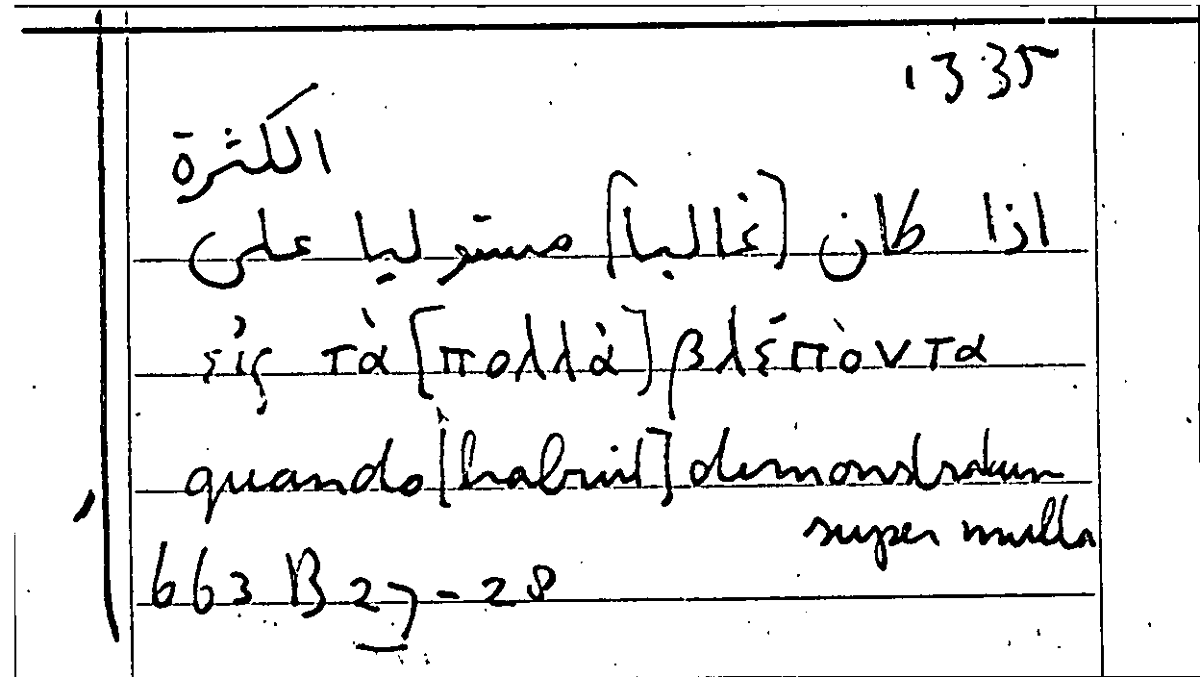 1335
الكثرة
اذا كان [غالبا] مستوليا على
εἰς τὰ [πολλὰ] βλέπὸντα
quando demonstratum
super multa
663 B 27-28